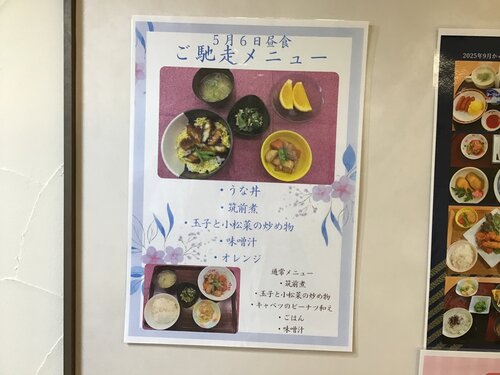 5月6日昼食
ご馳走メニュー
・うな丼
・筑前煮
・玉子と小松菜の炒め物
・味噌汁
・オレンジ
通常メニュー
・筑前煮
・玉子と小松菜の炒め物
・キャベツのピーナツ和え
・ごはん
・味噌汁
2025年9月か